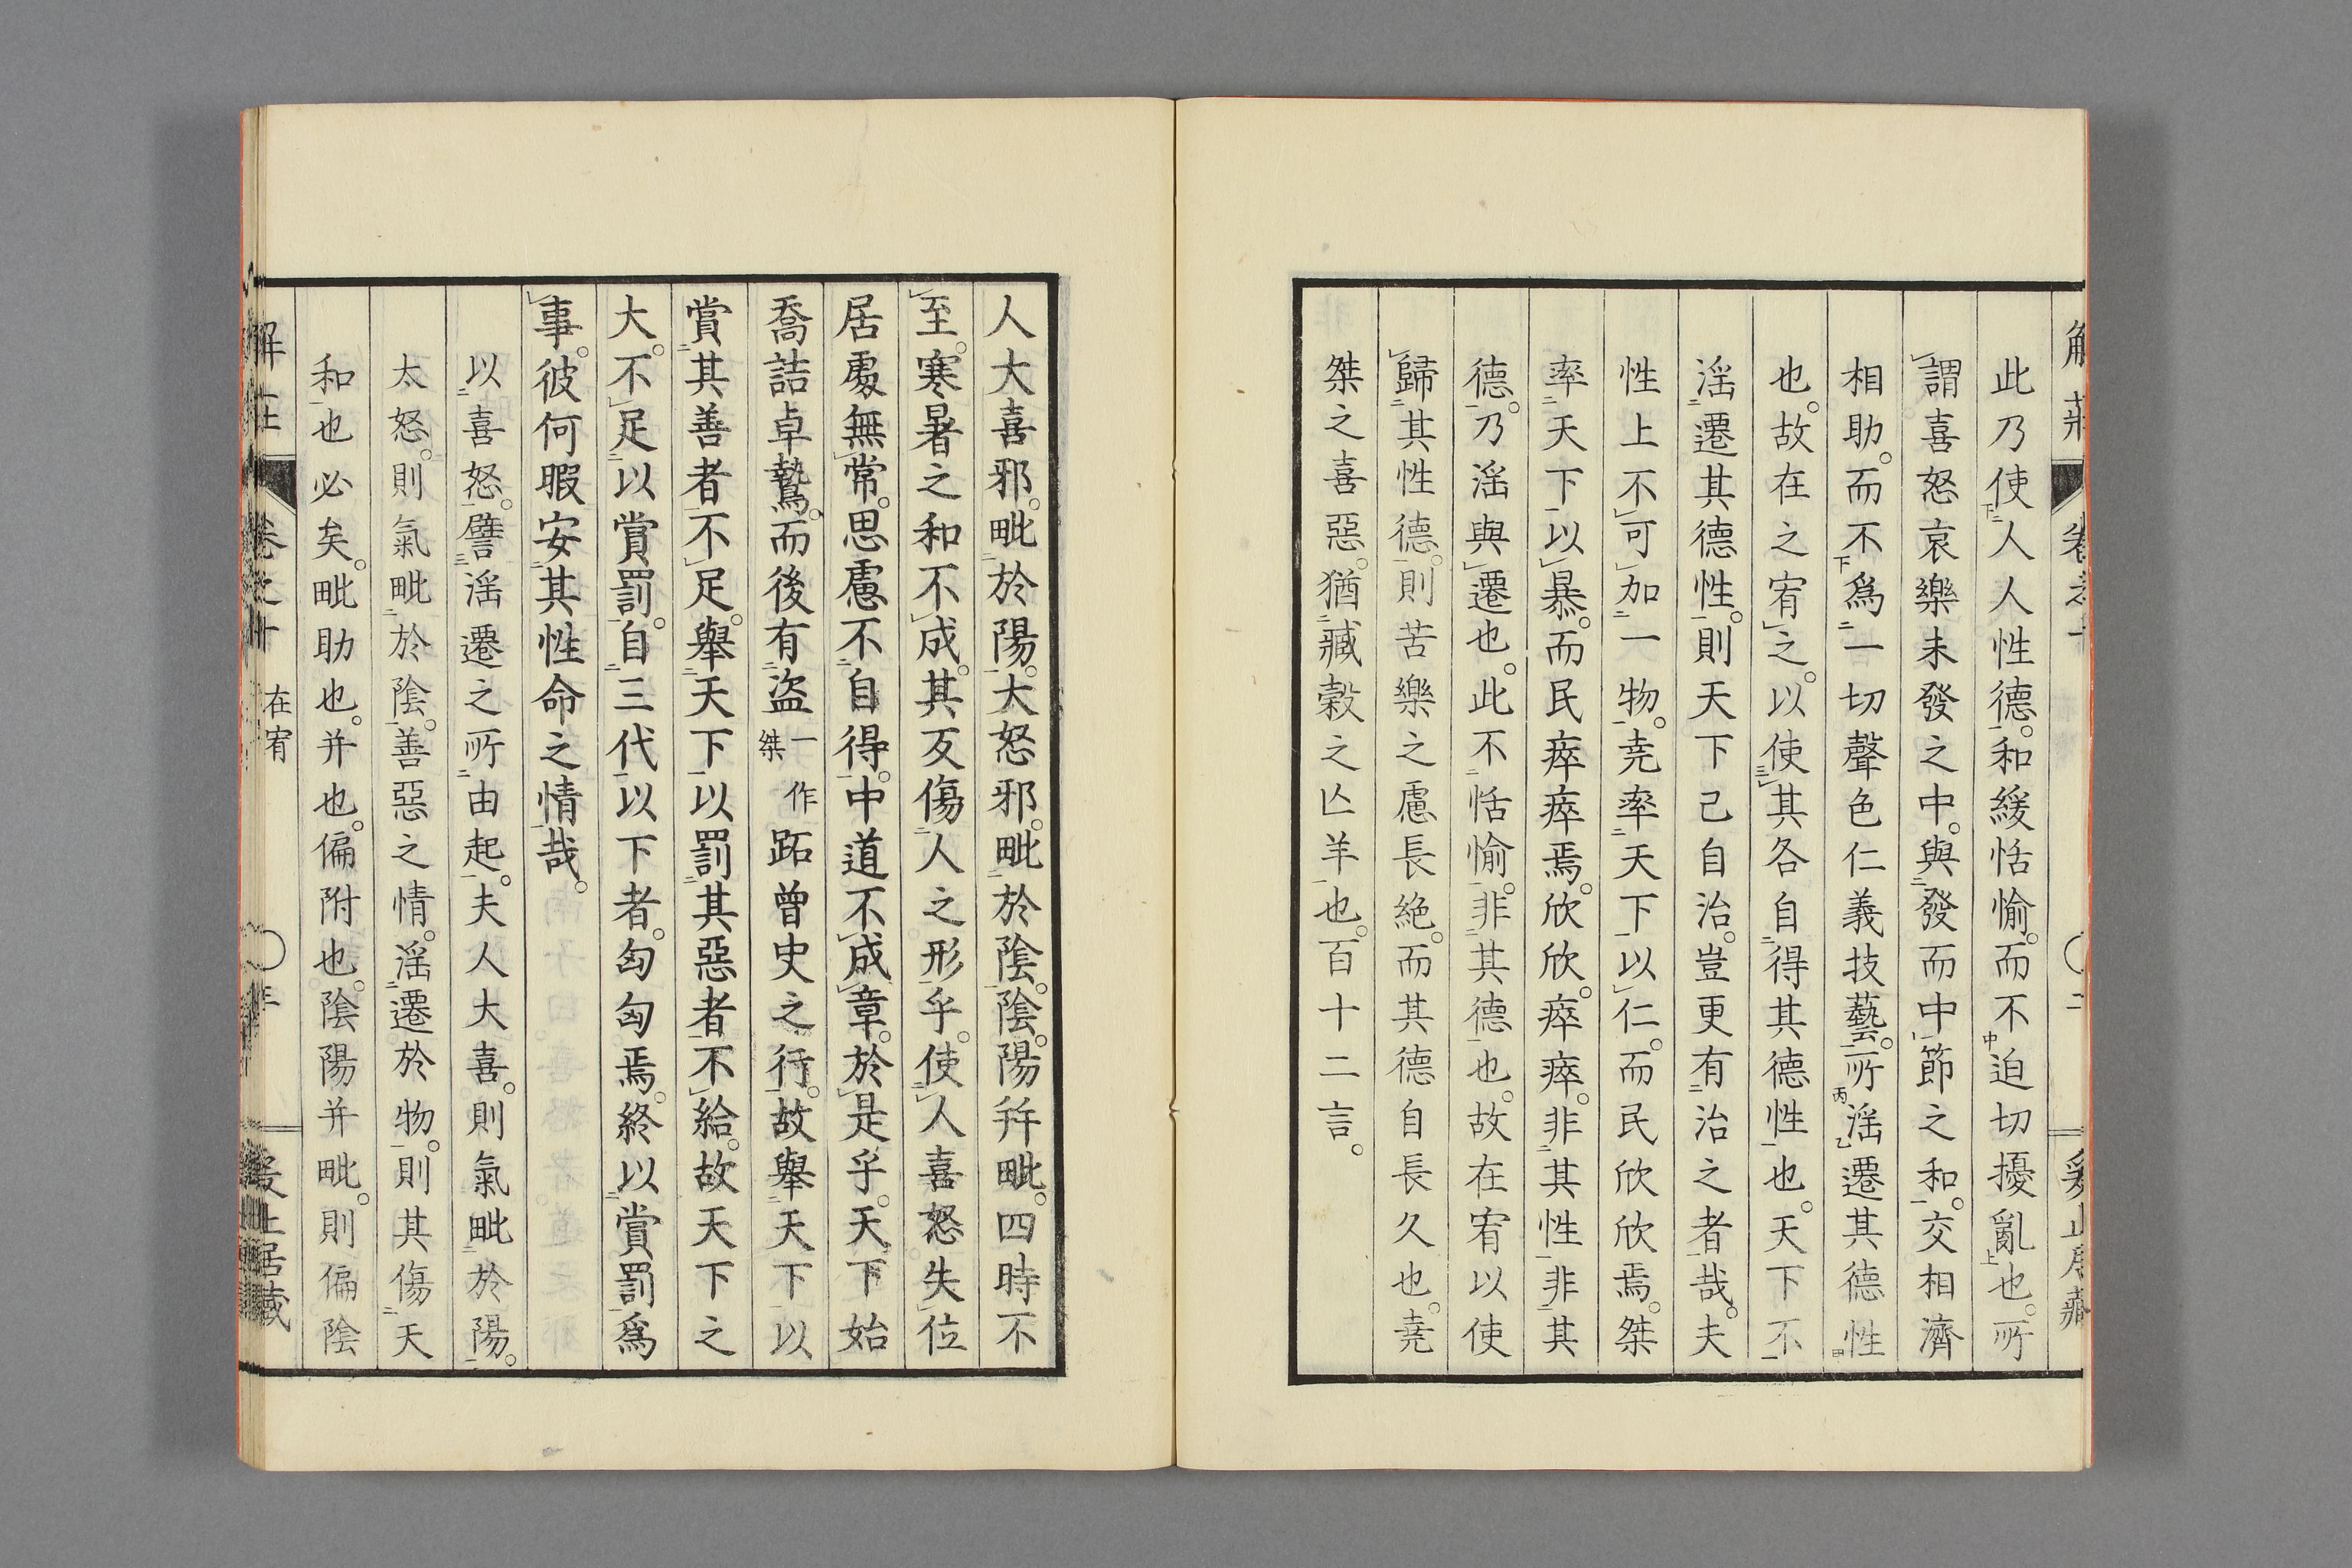 此乃使人人性德和緩恬愉。而不迫切擾亂也。所
謂喜怒哀樂未發之中。與發而中節之和。交相濟
相助。而不爲一切聲色仁義技藝。所淫遷其德性
也。故在之宥之。以使其各自得其德性也。天下不
淫遷其德性。則天下己自治。豈更有治之者哉。夫
性上不可加一物。堯率天下以仁。而民欣欣焉。桀
率天下以暴。而民瘁瘁焉。欣欣。瘁瘁。非其性。非其
德。乃淫與遷也。此不恬愉。非其德也。故在宥以使
歸其性德。則苦樂之慮長絶。而其德自長久也。堯
桀之喜惡。猶臧穀之亾羊也。百十二言。
人大喜邪。毗於陽。大怒邪。毗於陰。陰陽幷毗。四時不
至。寒暑之和不成。其反傷人之形乎。使人喜怒失位
居處無常。思慮不自得。中道不成章。於是乎。天下始
喬詰卓鷙。而後有盜一作桀跖曾史之行。故舉天下以
賞其善者不足。舉天下以罰其惡者不給。故天下之
大。不足以賞罰。自三代以下者。匈匈焉。終以賞罰爲
事。彼何暇安其性命之情哉。
以喜怒。譬淫遷之所由起。夫人大喜。則氣毗於陽。
太怒。則氣毗於陰。善惡之情。淫遷於物。則其傷天
和也必矣。毗助也。并也。偏附也。陰陽并毗。則偏陰
在宥